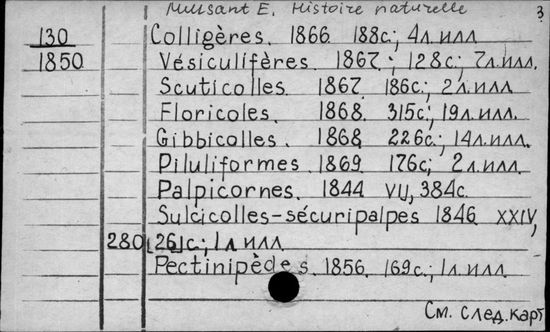 Mulsant E. Histoire naturelle 3
130 Colligères. 1866 188с.; 4л.илл.
1850 Vésiculifères. 1867; 128с.; 7л.илл.
Scuticolles. 1867. 186с.; 2л.илл.
Floricoles. 1868. 315с.; 19л.илл.
Gibbicolles. 1868 226с.; 14л.илл.
Piluliformes. 1869. 176с; 2л.илл.
Palpicornes. 1844 VII, 384с.
Sulcicolles-sécuripalpes 1846 XXIV,
280 [26]с.; 1л илл.
Pectinipèdes. 1856. 169с.; 1л.илл.
См. след.карт